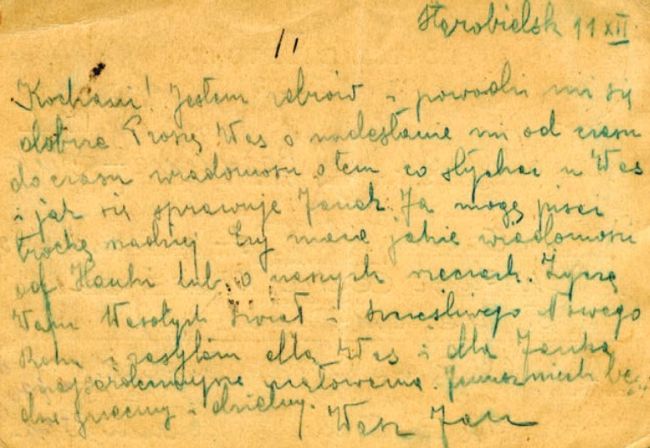 Starobielsk 11 XII
Kochani! Jestem zdrów i powodzi mi się
dobrze Proszę Was o nadesłanie mi od czasu
do czasu wiadomości o tem co słychać u Was
i jak się sprawuje Janek. Ja mogę pisać
trochę rzadziej Czy macie jakie wiadomości
od Hanki lub o naszych rzeczach. Życzę
Wam Wesołych Świąt i szczęśliwego Nowego
Roku i zasyłam dla Was i dla Janka
najserdeczniejsze ucałowania. niech bę-
dzie grzeczny i dzielny. Wasz Jan